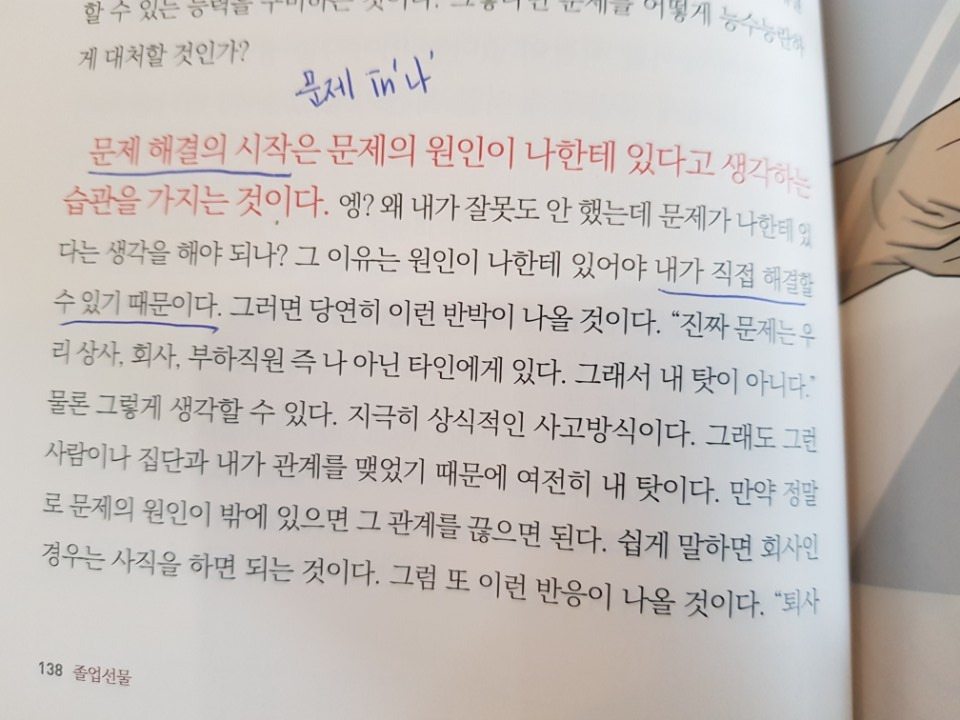 할 수 있는 능력을 구비하는 것이다. 그렇다면 문제를 어떻게 능수능란하
게 대처할 것인가?
문제 in '나'
문제 해결의 시작은 문제의 원인이 나한테 있다고 생각하는
습관을 가지는 것이다. 엥? 왜 내가 잘못도 안 했는데 문제가 나한테 있
다는 생각을 해야 되나? 그 이유는 원인이 나한테 있어야 내가 직접 해결할
수 있기 때문이다. 그러면 당연히 이런 반박이 나올 것이다. “진짜 문제는 우
리 상사, 회사, 부하직원 즉 나 아닌 타인에게 있다. 그래서 내 탓이 아니다.”
물론 그렇게 생각할 수 있다. 지극히 상식적인 사고방식이다. 그래도 그런
사람이나 집단과 내가 관계를 맺었기 때문에 여전히 내 탓이다. 만약 정말
로 문제의 원인이 밖에 있으면 그 관계를 끊으면 된다. 쉽게 말하면 회사인
경우는 사직을 하면 되는 것이다. 그럼 또 이런 반응이 나올 것이다. “퇴사
138 졸업선물